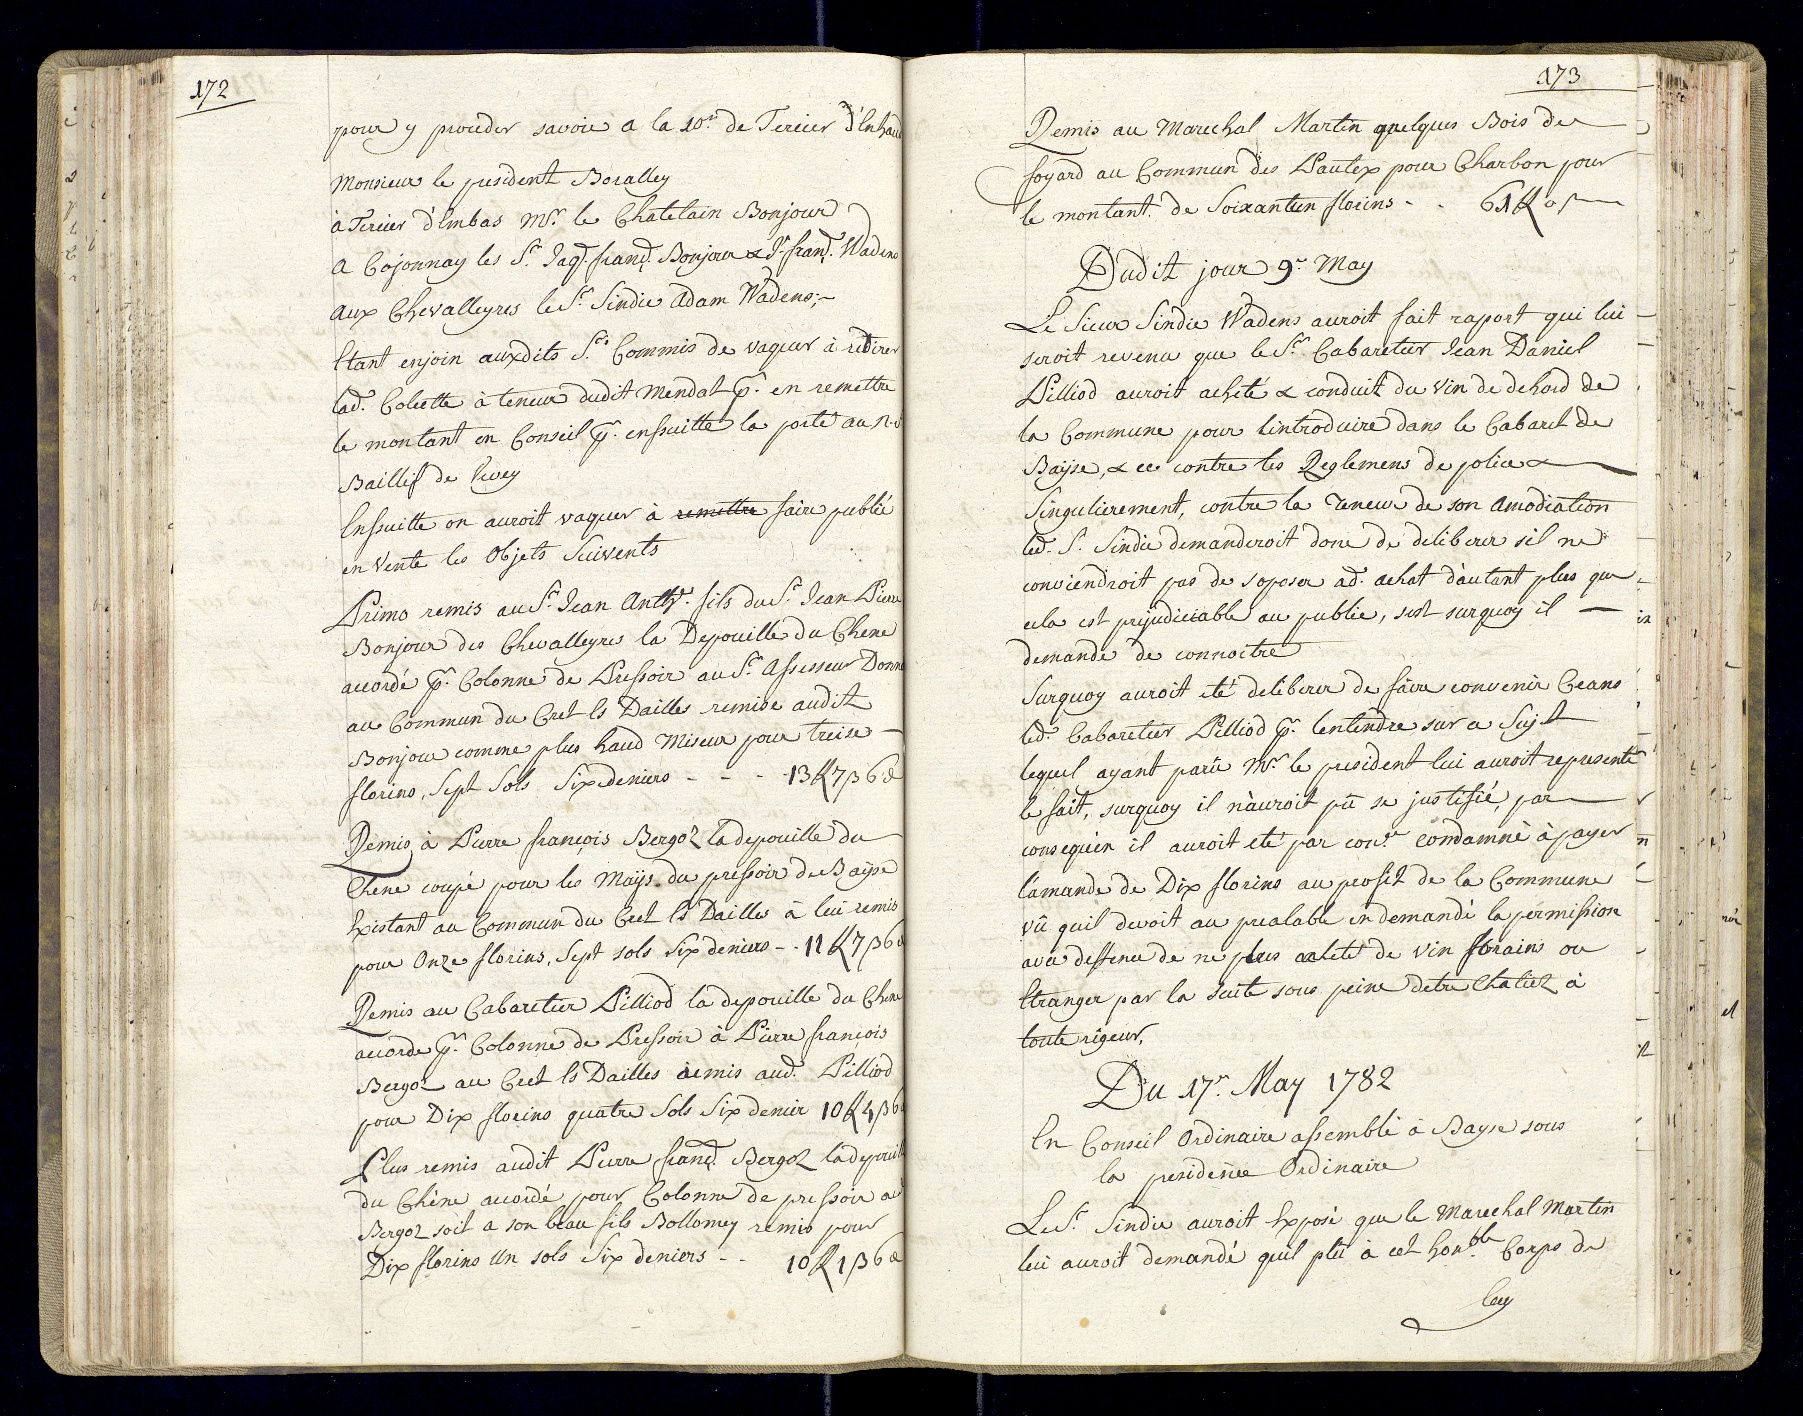 172
pour y proceder savoir a la 10.e de Tercier d'Enhaut
Monsieur le president Boralley
à Tercier d'Embas Mr. le Chatelain Bonjour
a Cojonnay les Sr. Jaq. franç. Bonjour & Jn. franç. Wadens
aux Chevalleyres le Sr. Sindic Adam Wadens;~
Etant enjoin auxdits Srs. Commis de vaquer à retirer
lad. Colecte à teneur dudit Mendat pr. en remettre
le montant en Conseil pr. enssuitte la porté au
Baillif de Vevey
Enssuitte on auroit vaquer à remettre faire publié
en Vente les Objets Suivents
Primo remis au Sr. Jean Anth.e fils du Sr. Jean Pierre
Bonjour des Chevalleyres la Depouille du Chene
acordé pr. Colonne de Pressoir au Sr. Assesseur
au Commun du Cret Es Dailles remise audit
Bonjour comme plus haud Miseur pour treise —
florins, Sept Sols Six deniers - - - 13 fl 7 β 6 d
Remis à Pierre françois Bergoz la depouille du
Chene coupé pour les Mays du pressoir de Bayse
Existant au Commun du Cret Es Dailles à lui remis
pour Onze florins, Sept sols Six deniers - - 11 fl 7 β 6 d
Remis au Cabaretier Pilliod la depouille du Chene
acorde pr. Colonne de Pressoir à Pierre françois
Bergoz au Cret Es Dailles remis aud. Pilliod
pour Dix florins quatre Sols Six denier 10 fl 4 β 6 d
Plus remis audit Pierre franç. Bergoz la depouille
du Chêne acordé pour Colonne de pressoir
Bergoz soit a son beau fils Bollomey remis pour
Dix florins Un sols Six deniers - - 10 fl 1 β 6 d
173
Remis au Marechal Martin quelques Bois de
foyard au Commun des Pautex pour Charbon pour
le montant de Soixanteun florins - - 61 fl
Dudit jour 9e May
Le Sieur Sindic Wadens auroit fait raport qui lui
seroit revenu que le Sr. Cabaretier Jean Daniel
Pilliod auroit acheté & conduit du Vin de dehord de
la Commune pour lintroduire dans le Cabaret de
Bayse, & ce contre les Reglemens de police &
Singulierement, contre la Teneur de son Amodiation
led. Sr. Sindic demanderoit donc de deliberer sil ne
conviendroit pas de soposer ad. achat d'autant plus que
cela est prejudiciable au public, sest surquoy il —
demande de connoitre
Surquoy auroit eté deliberer de faire convenir Ceans
led. Cabaretier Pilliod pr. lentendre sur ce Sujet
lequel ayant parû Mr. le president lui auroit representé
le fait, surquoy il n'auroit pû se justifié, par
consequen il auroit eté par con.r condamné à payer
l'amande de Dix florins au profit de la Commune
vû quil devoit au prealable en demandé la permission
avec deffence de ne plus acheté de vin forains ou
Etranger par la suite sous peine detre Chatiez à
toute rigeur.
Du 17e. May 1782
En Conseil Ordinaire assemblé à Bayse sous
la presidence Ordinaire
Le Sr. Sindic auroit Exposé que le Marechal Martin
lui auroit demandé quil plû à cet hon.ble Corps de